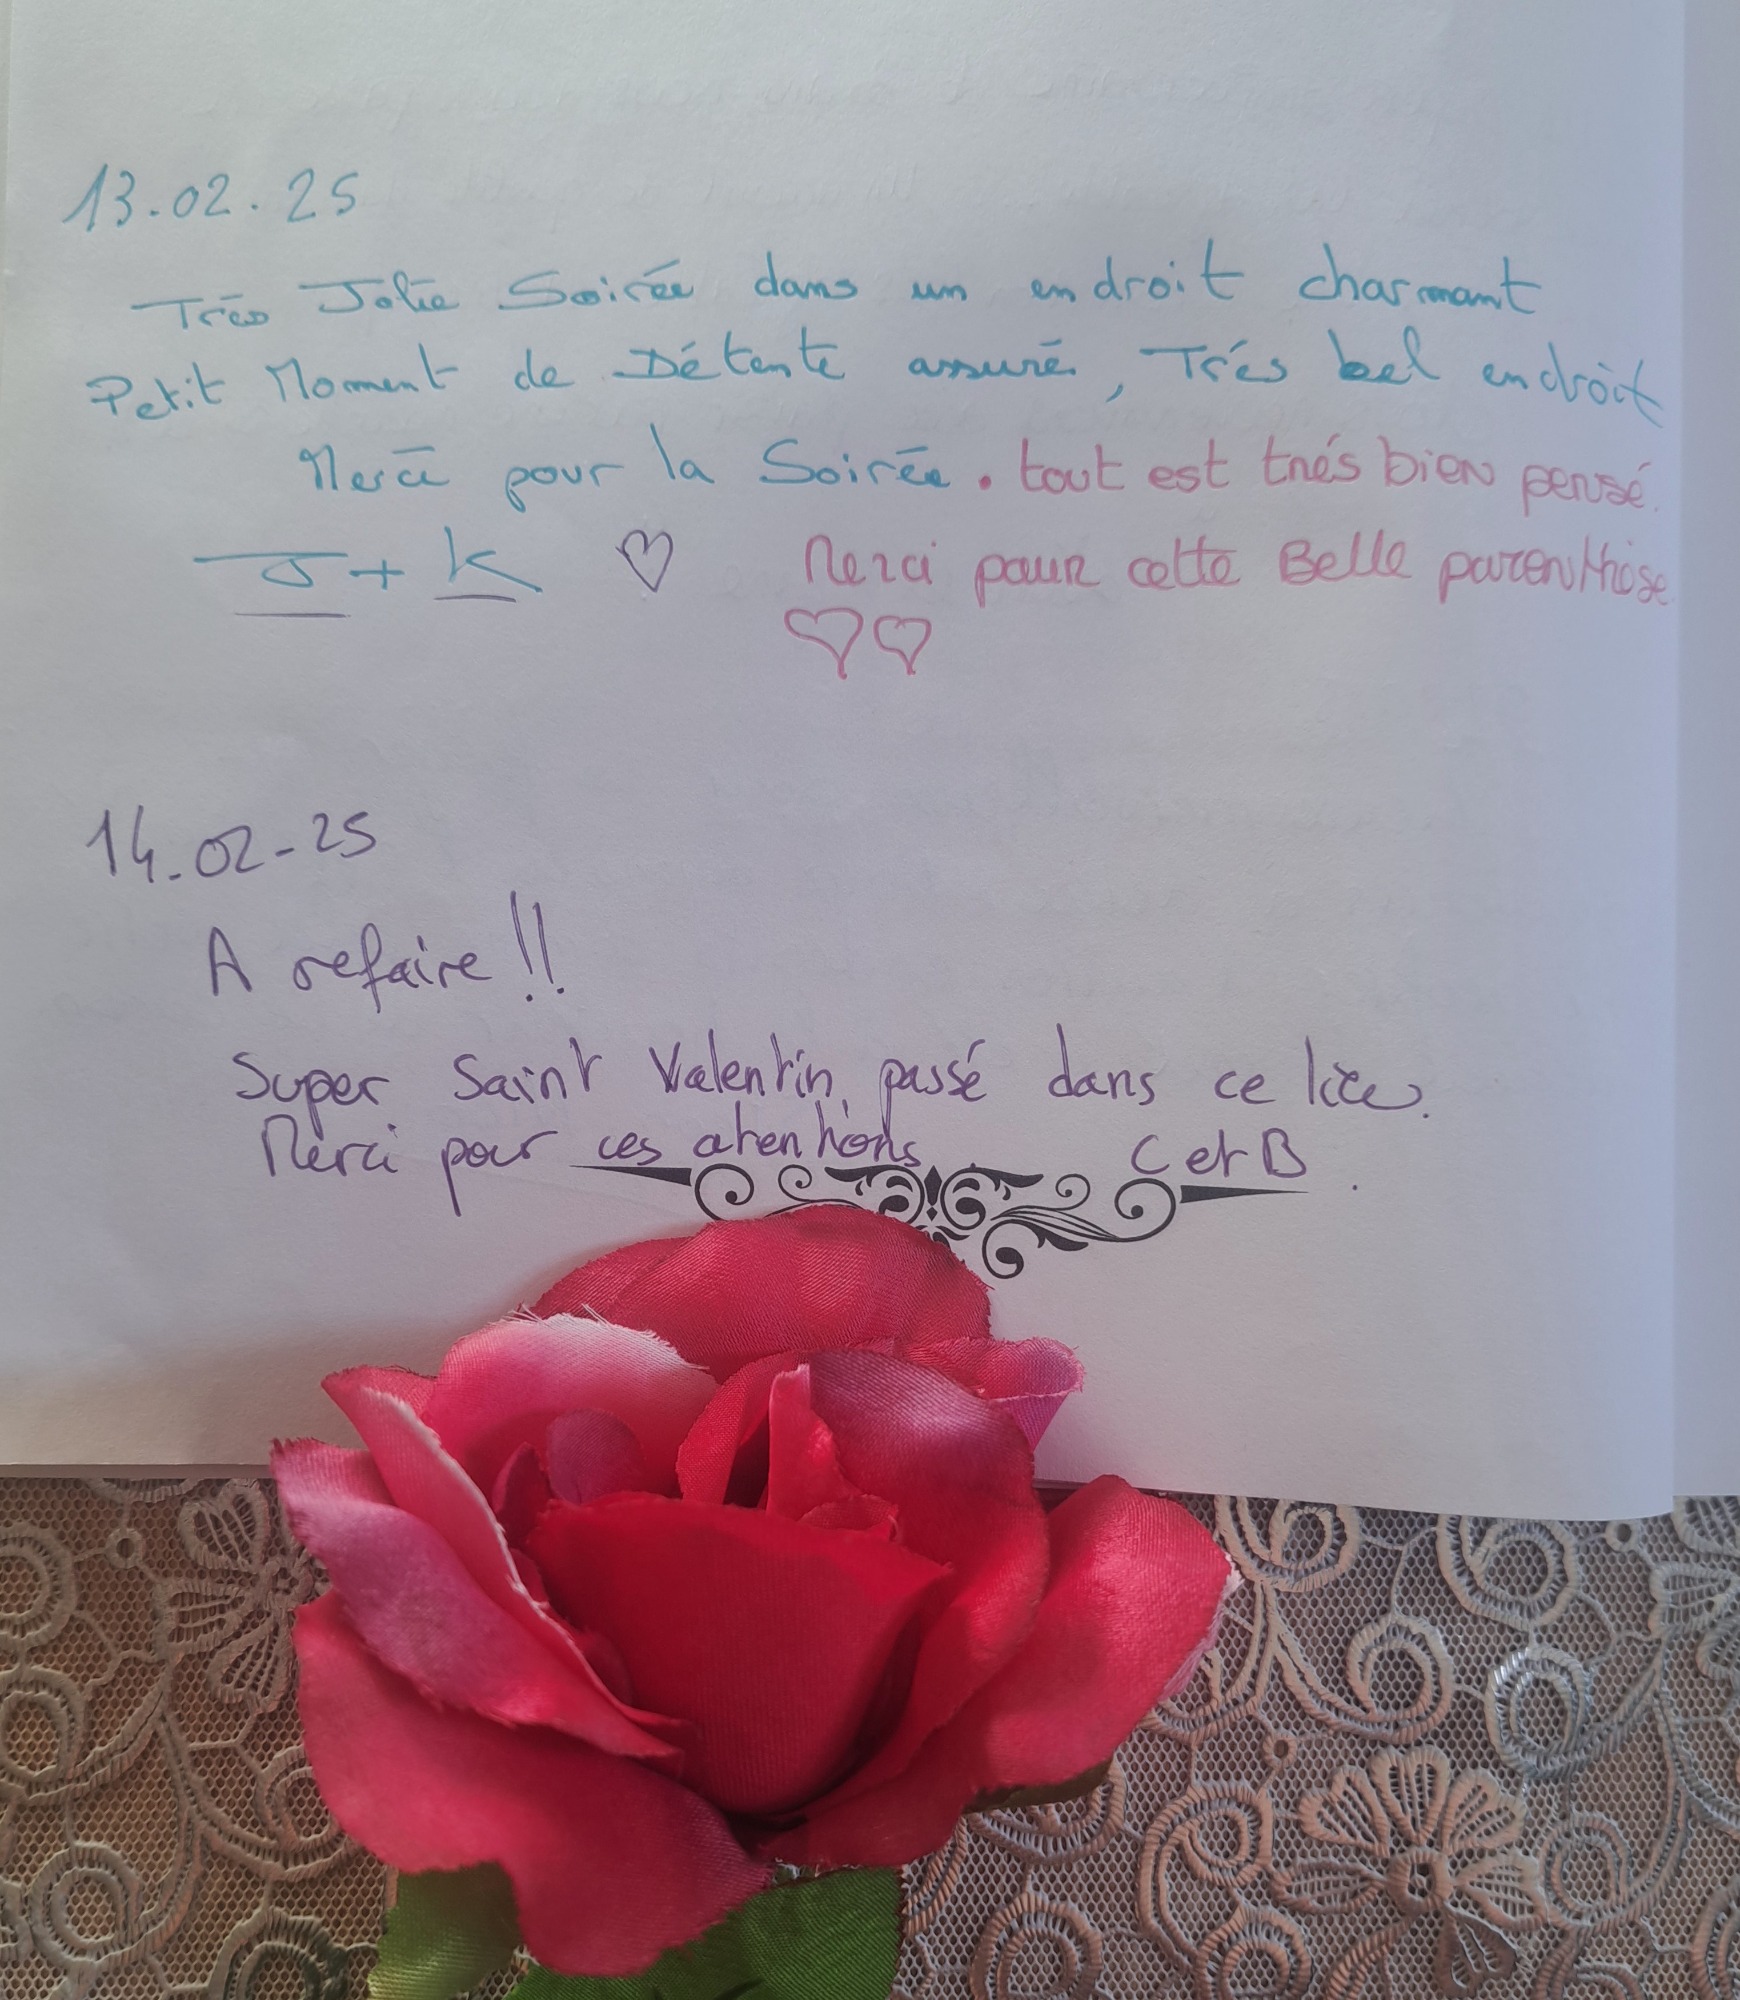 13.02.25
Très Jolie Soirée dans un endroit charmant
Petit Moment de Détente assuré, Trés bel endroit
Merci pour la Soirée. tout est trés bien pensé.
J + K ♡ Merci pour cette Belle parenthèse
♡♡
14.02-25
A refaire !!
Super Saint Valentin, passé dans ce lieu.
Merci pour ces atentions C et B.